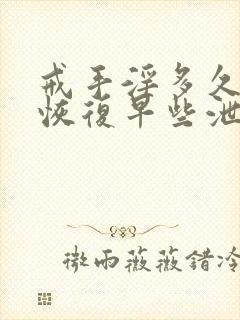 戒手淫多久
恢復早些泄
微雨薇薇錯冷